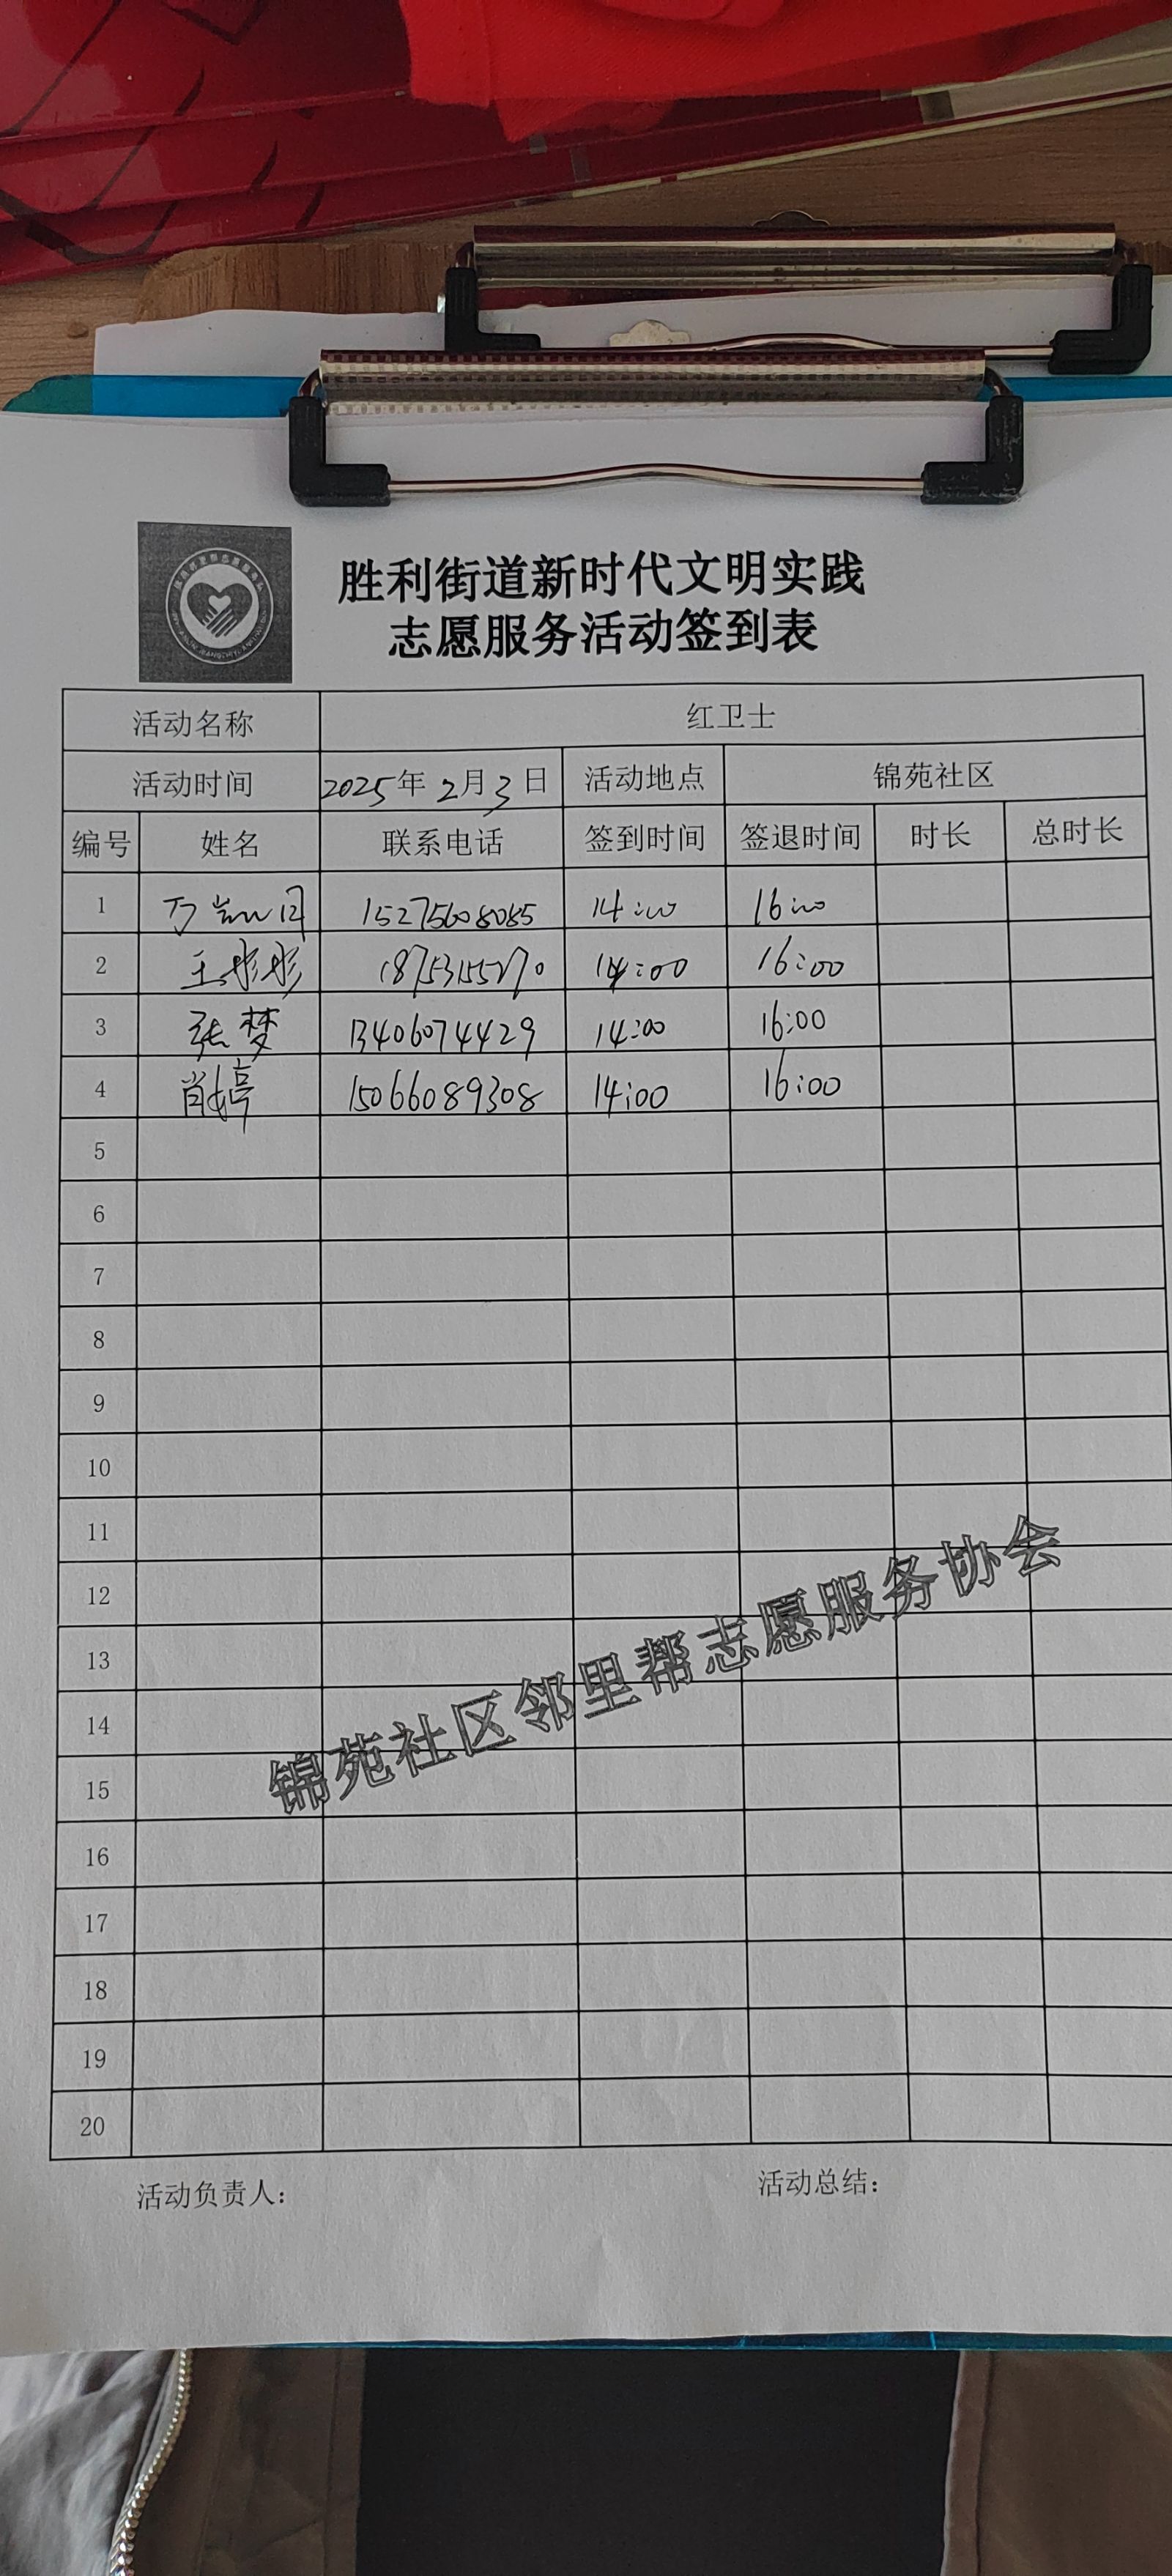 胜利街道新时代文明实践
志愿服务活动签到表
活动名称 红卫士
活动时间 2025年2月3日 活动地点 锦苑社区
编号 姓名 联系电话 签到时间 签退时间 时长 总时长
1 15275608085 14:00 16:00
2 王彬彬 14:00 16:00
3 张梦 13406074429 14:00 16:00
4 肖婷 15066089308 14:00 16:00
5
6
7
8
9
10
11
12
13
14
15
16
17
18
19
20
锦苑社区邻里帮志愿服务协会
活动负责人： 活动总结：